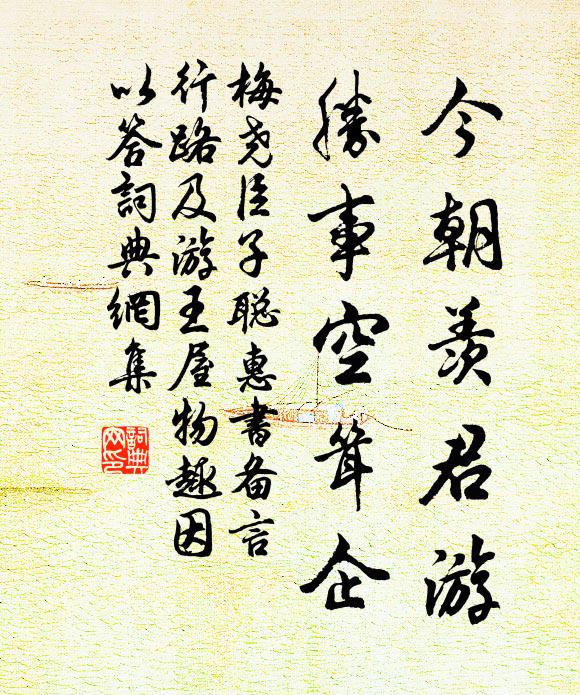 今朝羨君游
勝事空耸企
梅尧臣子聪惠書备言
行路及游王屋物趣因
以答詞典網集
詞典
网印